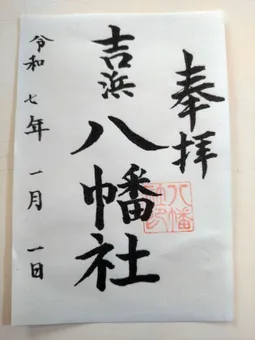 奉拝
吉浜
八幡社
令和七年一月一日
八幡
社印